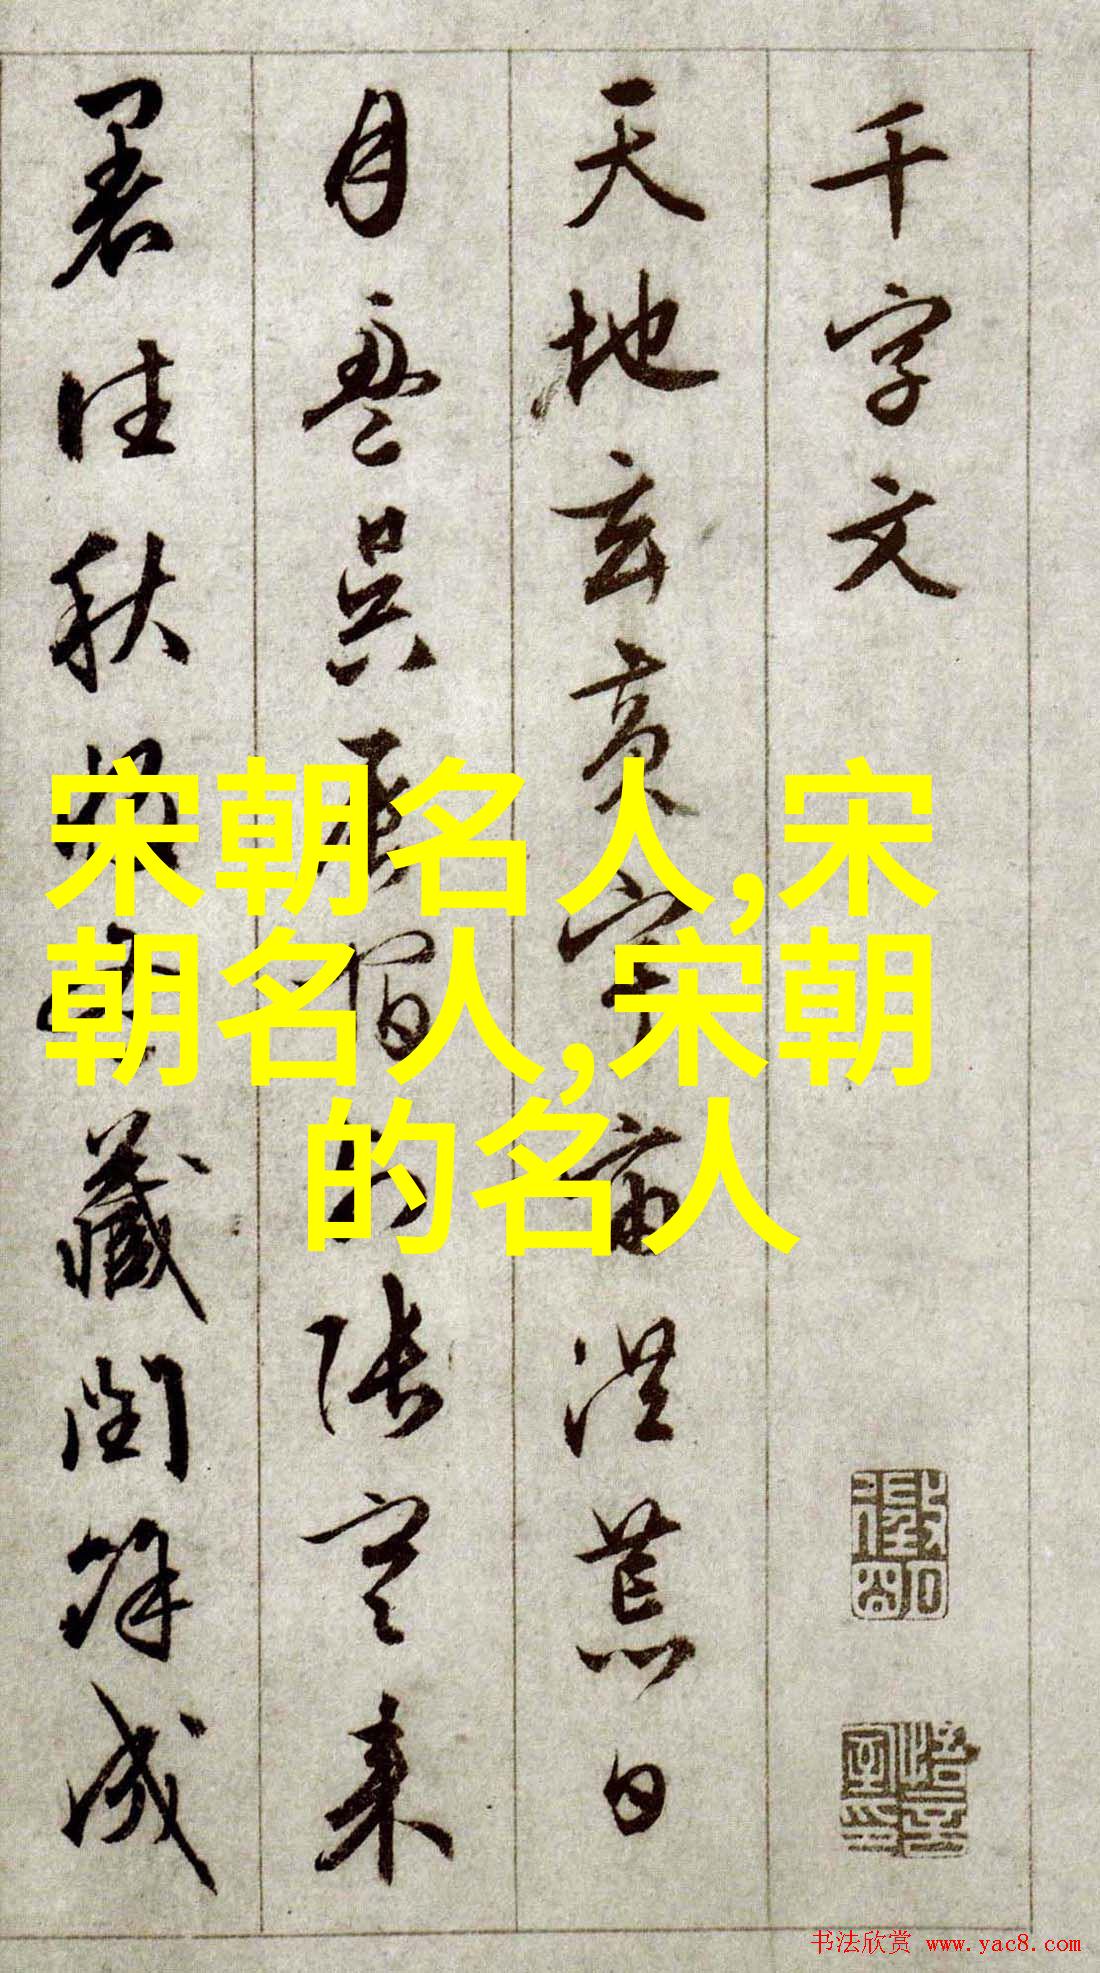 千字文
天地玄黃宇宙洪荒日
月盈昃辰宿列張寒来
暑往秋收冬藏閏餘成
宋朝名人,宋
朝名人,宋朝
的名人
书法欣赏 www.yac8.com